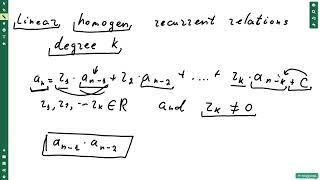 Linear homogen, recurrent relations
degree k
aₙ = r₁ · aₙ₋₁ + r₂ · aₙ₋₂ + .... + rₖ · aₙ₋ₖ + C
r₁, r₂, ... rₖ ∈ R and rₖ ≠ 0
aₙ₋₁ · aₙ₋₂